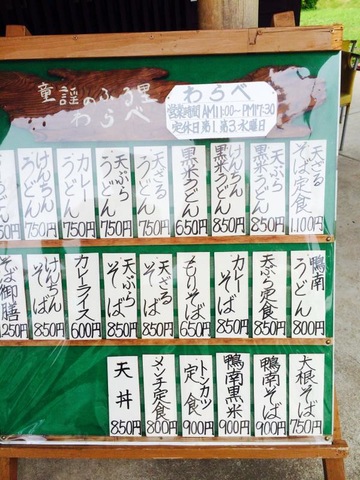 童謡のふる里
わらべ
わらべ
営業時間 AM11:00〜PM17:30
定休日 第1.第3.水曜日
天ざるそば定食 1,100円
天ぷら黒米うどん 850円
けんちん黒米うどん 850円
黒米うどん 650円
天ざるうどん 750円
天ぷらうどん 750円
カレーうどん 750円
けんちんうどん 750円
うどん 50円
鴨南うどん 800円
天ぷら定食 850円
カレーそば 850円
もりそば 650円
天ざるそば 850円
天ぷらそば 850円
カレーライス 600円
けんちんそば 850円
そば御膳 1,250円
大根そば 750円
鴨南そば 900円
鴨南黒米 900円
トンカツ定食 900円
メンチ定食 800円
天丼 850円